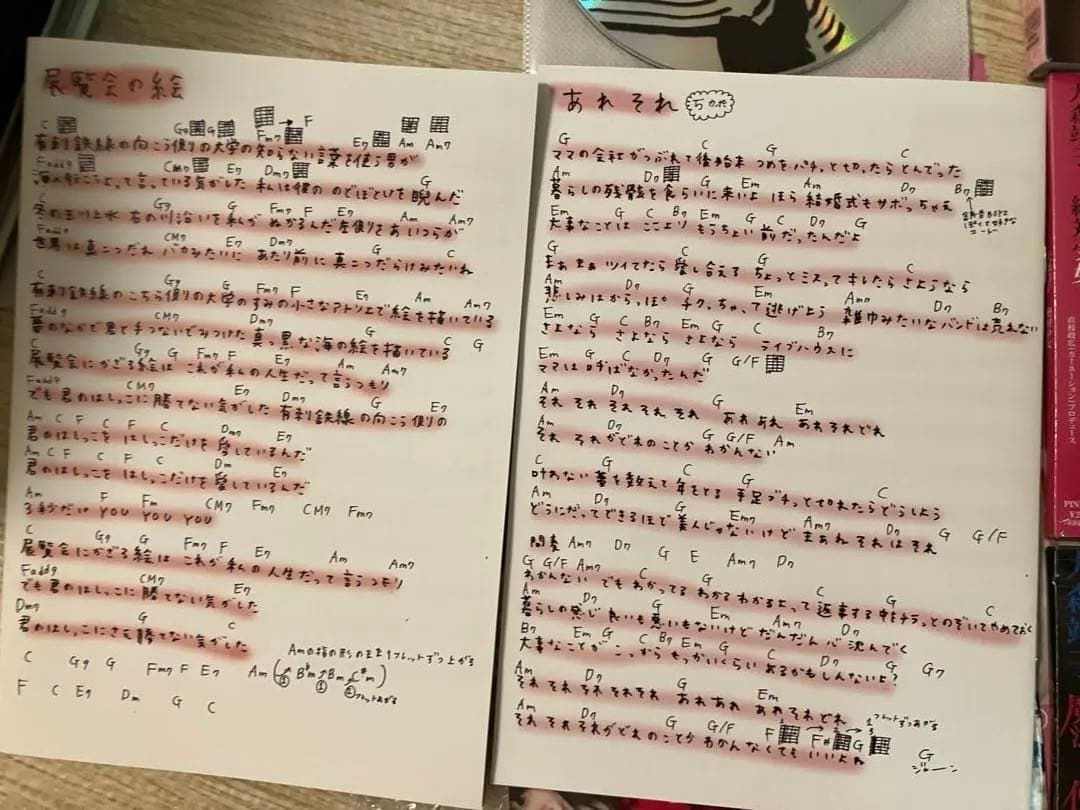 展覧会の絵
C G9 G Fm7 → F E7 Am Am7
有刺鉄線の向こう側の大学の知らない言葉を使う君が
Fadd9 CM7 E7 Dm7 G
海へ行こうよって言っている気がした 私は彼ののどぼとけを睨んだ
C G9 G Fm7 F E7 Am Am7
冬の玉川上水 右の川沿いを私が ぬかるんだ左側をあいつらが
Fadd9 CM7 E7 Dm7 G C
世界は真っ二つだね バカみたいに あたり前に 真っ二つだらけみたいね
C G9 G Fm7 F E7 Am Am7
有刺鉄線のこちら側の大学のすみの小さなアトリエで絵を描いている
Fadd9 CM7 Dm7 G C G
夢のなかで君と手つないでみつけた真っ黒な海の絵を描いている
C G9 G Fm7 F E7 Am Am7
展覧会にかざる絵は これが私の人生だって言うつもり
Fadd9 CM7 E7 Dm7 G E7
でも君のはしっこに勝てない気がした 有刺鉄線の向こう側の
Am C F C F C Dm7 E7
君のはしっこを はしっこだけを愛しているんだ
Am C F C F C Dm E7
君のはしっこを はしっこだけを愛しているんだ
Am F Fm CM7 Fm7 CM7 Fm7
3秒だけ YOU YOU YOU
C G9 G Fm7 F E7 Am Am7
展覧会にかざる絵は これが私の人生だって言うつもり
Fadd9 CM7 E7
でも君のはしっこに勝てない気がした
Dm7 G C
君のはしっこにさえ勝てない気がした
Amの指の形のまま1フレットずつ上がる
C G9 G Fm7 F E7 Am (B♭m Bm C#m)
フレットあがる
F C E7 Dm G C
あれそれ 5カポ
G C G C
ママの会社がつぶれて後始末 つめをパチっと切ったらとんでった
Am D7 G Em Am D7 B7
暮らしの残骸を食らいに来いよ ほら 結婚式もサボっちゃえ
Em G C B7 Em G C D7 G
大事なことは ここより もうちょい前だったんだよ
G C G C
まぁまぁツイてたら愛し合える ちょっとミスってキレたらさようなら
Am D7 G Em Am7 D7 B7
悲しみはからっぽ。チクっちゃって逃げよう 雑巾みたいなバンドは売れない
Em G C B7 Em G C B7
さよなら さよなら さよなら ライブハウスに
Em G C D7 G G/F
ママは呼ばなかったんだ
Am D7 G Em
それ それ それ それ それ あれ あれ あれそれどれ
Am D7 G G/F Am
それ それがどれのことか わかんない
C G C G C
叶わない夢を数えて年をとる 手足ブチっと切れたらどうしよう
Am D7 G Em7 Am7 D7 G G/F
どうにだってできるほど美人じゃないけど まあそれはそれ
間奏 Am7 D7 G E Am7 D7
G G/F Am7 C G C G C
わかんない でもわかってる わかるわかるよって返事する中をチラっとのぞいてやめておく
Am D7 G Em Am7 D7
暮らしの感じ 良いも悪いもないけどだんだん心沈んでく
B7 Em G C B7 Em G C D7 G G7
大事なことがこっからもっかいくらい あるかもしんないよ?
Am D7 G Em
それ それ それ それそれ あれあれ あれそれどれ
Am D7 G G/F F → F# → G
それ それ それがどれのことか わかんなくてもいいよね
1フレットずつあがる
G
ジャーン